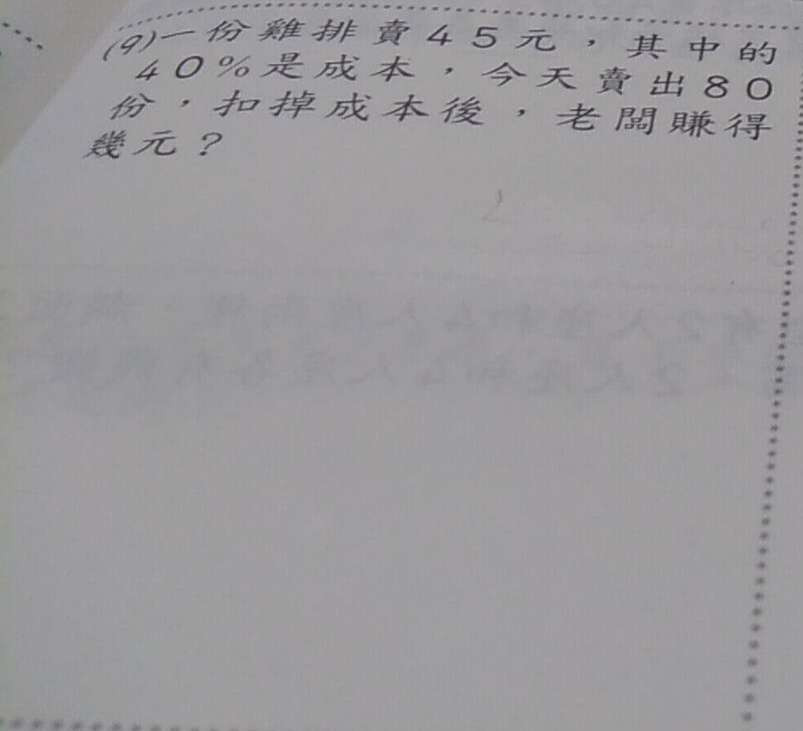 (9)一份雞排賣45元，其中的
40%是成本，今天賣出80
份，扣掉成本後，老闆賺得
幾元？